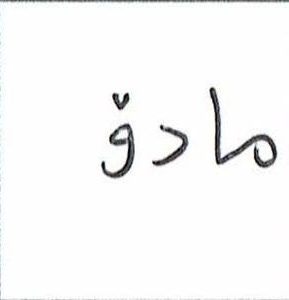 مادۆ